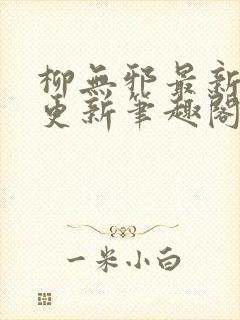 柳無邪最新
更新筆趣閣
一米小白